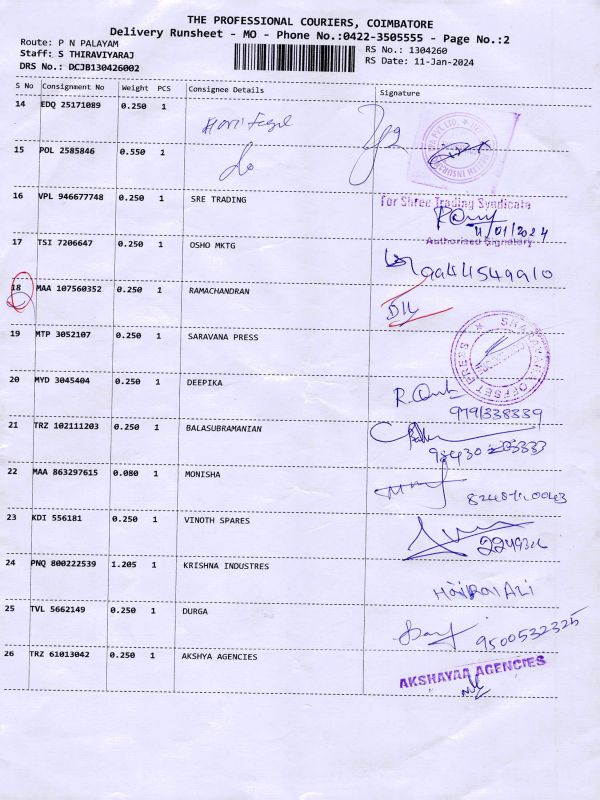 THE PROFESSIONAL COURIERS, COIMBATORE
Delivery Runsheet - MO - Phone No.:0422-3505555 - Page No.:2
Route: P N PALAYAM
RS No.: 1304260
Staff: S THIRAVIYARAJ
RS Date: 11-Jan-2024
DRS No.: DCJB130426002
S No Consignment No Weight PCS Consignee Details Signature
14 EDQ 25171089 0.250 1
15 POL 2585846 0.550 1
16 VPL 946677748 0.250 1 SRE TRADING
For Shree Trading Syndicate
11/01/2024
Authorised Signatory
17 TSI 7206647 0.250 1 OSHO MKTG
18 MAA 107560352 0.250 1 RAMACHANDRAN
19 MTP 3052107 0.250 1 SARAVANA PRESS
20 MYD 3045404 0.250 1 DEEPIKA
9791338339
21 TRZ 102111203 0.250 1 BALASUBRAMANIAN
22 MAA 863297615 0.080 1 MONISHA
23 KDI 556181 0.250 1 VINOTH SPARES
24 PNQ 800222539 1.205 1 KRISHNA INDUSTRES
25 TVL 5662149 0.250 1 DURGA
9500532325
26 TRZ 61013042 0.250 1 AKSHYA AGENCIES
AKSHAYAA AGENCIES